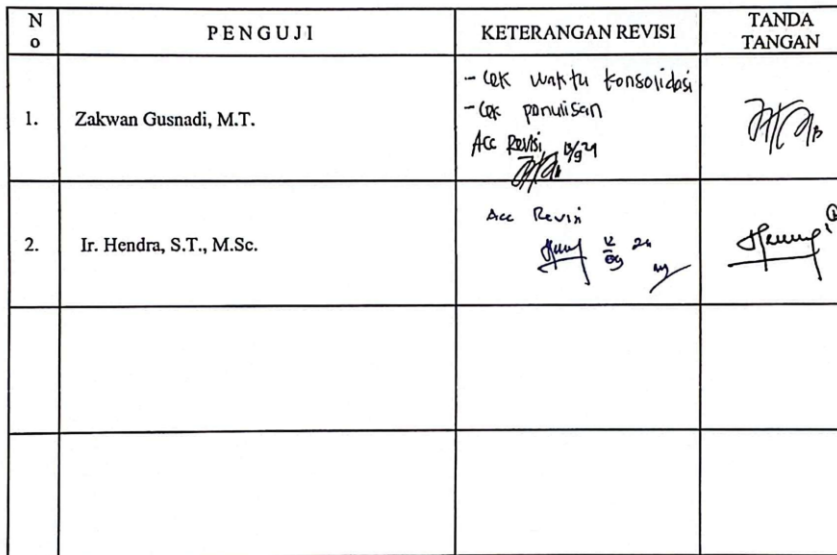 N
o
PENGUJI
KETERANGAN REVISI
TANDA
TANGAN
1.
Zakwan Gusnadi, M.T.
- Cek waktu konsolidasi
- Cek penulisan
Acc Revisi
2.
Ir. Hendra, S.T., M.Sc.
Acc Revisi